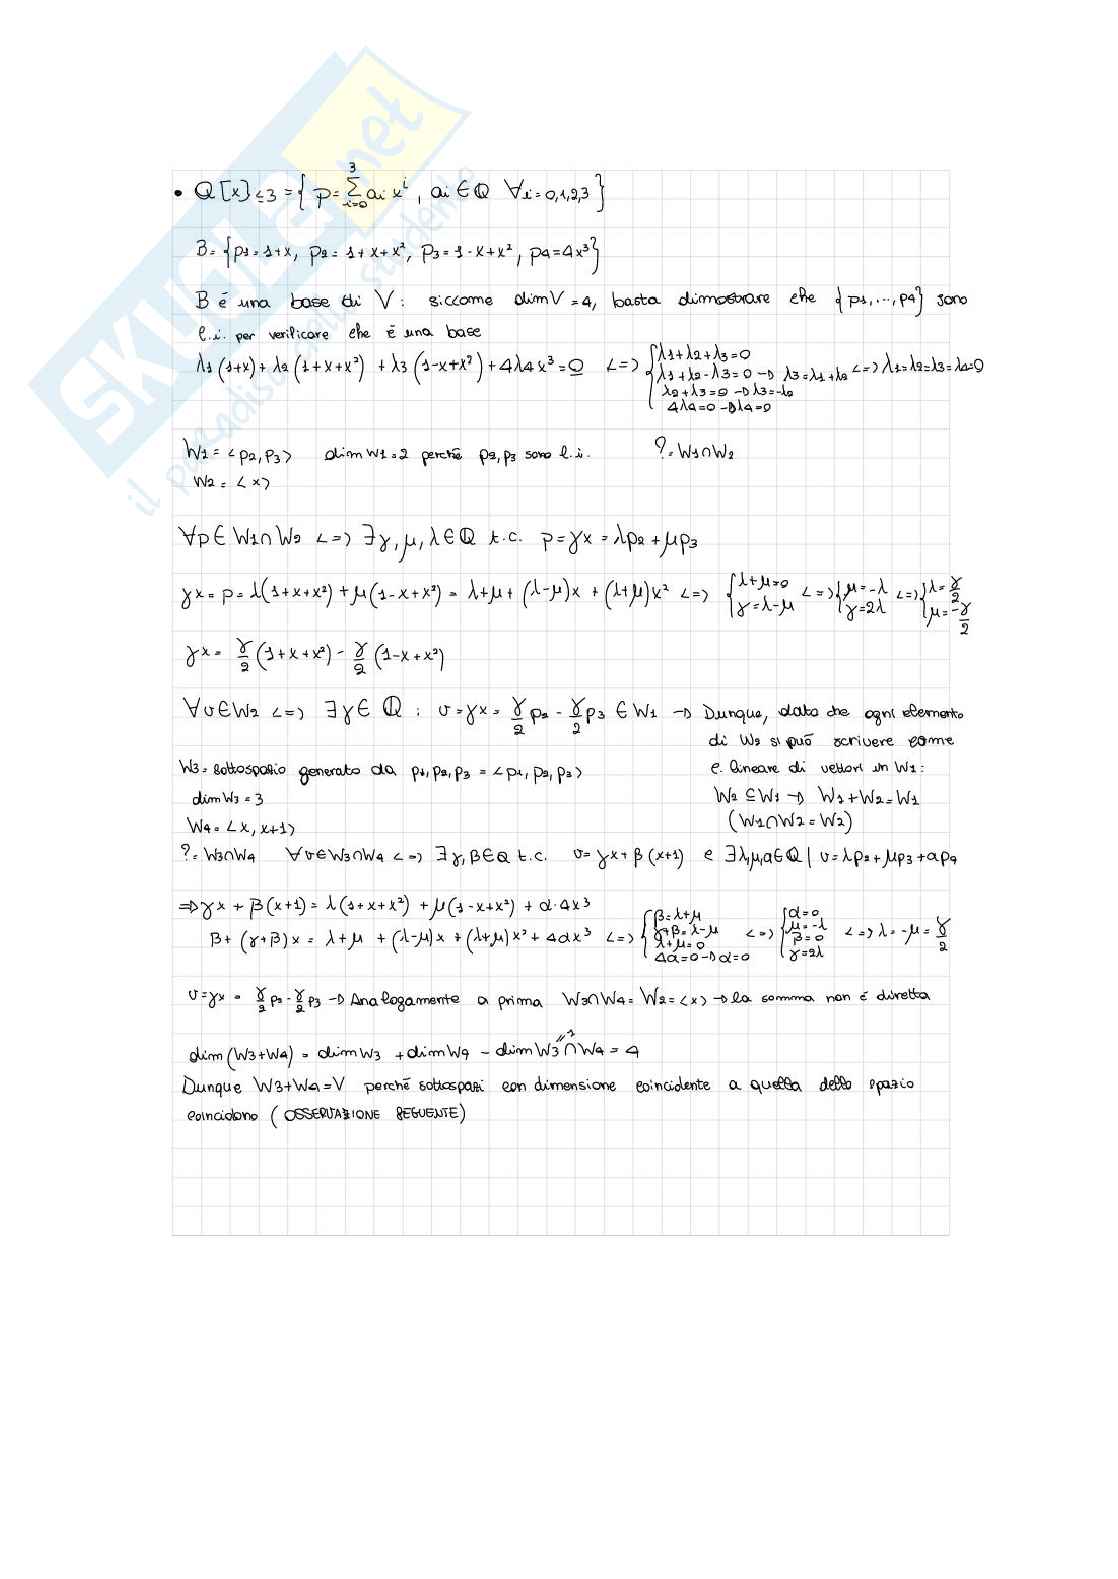 • Q[x]≤3 = { p = ∑_{i=0}^{3} ai x^i , ai ∈ Q ∀i = 0,1,2,3 }
B = { p1 = 1+x, p2 = 1+x+x², p3 = 1-x+x², p4 = 4x³ }
B é una base di V: siccome dim V = 4, basta dimostrare che {p1,...,p4} sono
l.i. per verificare che é una base
λ1(1+x) + λ2(1+x+x²) + λ3(1-x+x²) + 4λ4x³ = 0 <=> { λ1+λ2+λ3=0
λ1+λ2-λ3=0 → λ3=λ1+λ2 <=> λ1=λ2=λ3=λ4=0
λ2+λ3=0 → λ3=-λ2
4λ4=0 → λ4=0
W1 = <p2, p3> dim W1 = 2 perché p2, p3 sono l.i. ? = W1∩W2
W2 = <x>
∀p ∈ W1∩W2 <=> ∃γ, μ, λ ∈ Q t.c. p = γx = λp2 + μp3
γx = p = λ(1+x+x²) + μ(1-x+x²) = λ+μ + (λ-μ)x + (λ+μ)x² <=> { λ+μ=0 γ=λ-μ <=> { μ=-λ γ=2λ <=> { λ=γ/2 μ=-γ/2
γx = γ/2 (1+x+x²) - γ/2 (1-x+x²)
∀v∈W2 <=> ∃γ∈ Q : v = γx = γ/2 p2 - γ/2 p3 ∈ W1 → Dunque, dato che ogni elemento
di W2 si può scrivere come
c. lineare di vettori in W1:
W2 ⊆ W1 → W1+W2 = W1
(W1∩W2 = W2)
W3 = sottospazio generato da p1, p2, p3 = <p1, p2, p3>
dim W3 = 3
W4 = <x, x+1>
? = W3∩W4 ∀v∈W3∩W4 <=> ∃γ,β∈Q t.c. v = γx + β(x+1) e ∃λ,μ,α∈Q | v = λp2 + μp3 + αp4
⇒ γx + β(x+1) = λ(1+x+x²) + μ(1-x+x²) + α·4x³
β + (γ+β)x = λ+μ + (λ-μ)x + (λ+μ)x² + 4αx³ <=> { β=λ+μ γ+β=λ-μ λ+μ=0 4α=0 → α=0 <=> { α=0 μ=-λ β=0 γ=2λ <=> λ=-μ=γ/2
v = γx = γ/2 p2 - γ/2 p3 → Analogamente a prima W3∩W4 = W2 = <x> → la somma non é diretta
dim(W3+W4) = dim W3 + dim W4 - dim W3∩W4 = 4
=1
Dunque W3+W4 = V perché sottospazi con dimensione coincidente a quella dello spazio
coincidono (OSSERVAZIONE SEGUENTE)
SKUOLA.net
il paradiso dello studente